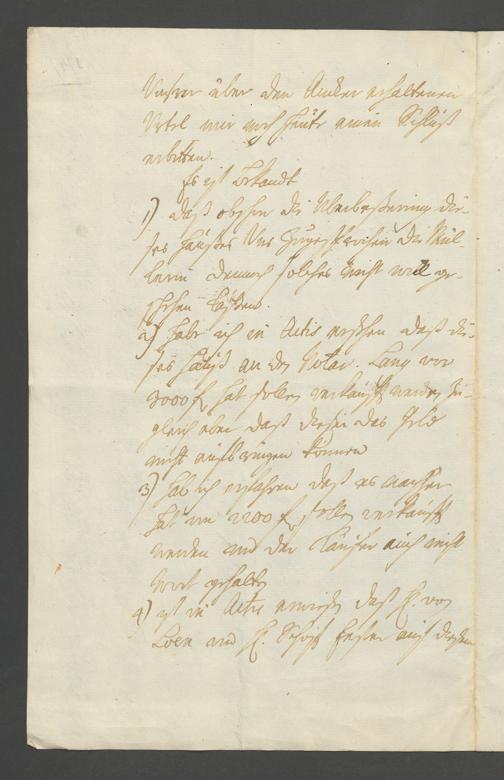 Unser über den Anker erhaltenen
Urtel mir noch heute einen Schluß
erbitten.
Es ist bekandt
1) daß obschon die Überbeßerung die-
ses Haußes Uns zugesprochen die Mül-
lerin dennoch solches nicht will ge-
schehen laßen.
2) Habe ich in Actis ersehen daß die-
ses Hauß an den Notar. Lang vor
3000 f hat sollen verkaufft werden zu-
gleich aber daß dieser das Geld
nicht aufbringen können
3) Hab ich erfahren daß es nachher
hat um 2200 f sollen verkaufft
werden und der Käufer auch nicht
Wort gehalten
4) ist in Actis erwiesen daß H. von
Loen und H. Schöff auch